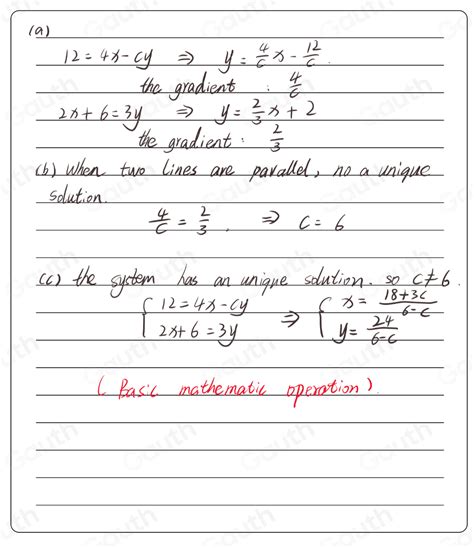 (a)
12 = 4x - cy ⇒ y = 4/c x - 12/c.
the gradient : 4/c
2x + 6 = 3y ⇒ y = 2/3 x + 2
the gradient : 2/3
(b) When two lines are parallel, no a unique
solution.
4/c = 2/3 . ⇒ c = 6
(c) the system has an unique solution. so c ≠ 6
{ 12 = 4x - cy ⇒ { x = 18+3c / 6-c
2x + 6 = 3y y = 24 / 6-c
( Basic mathematic operation ).
Gauth